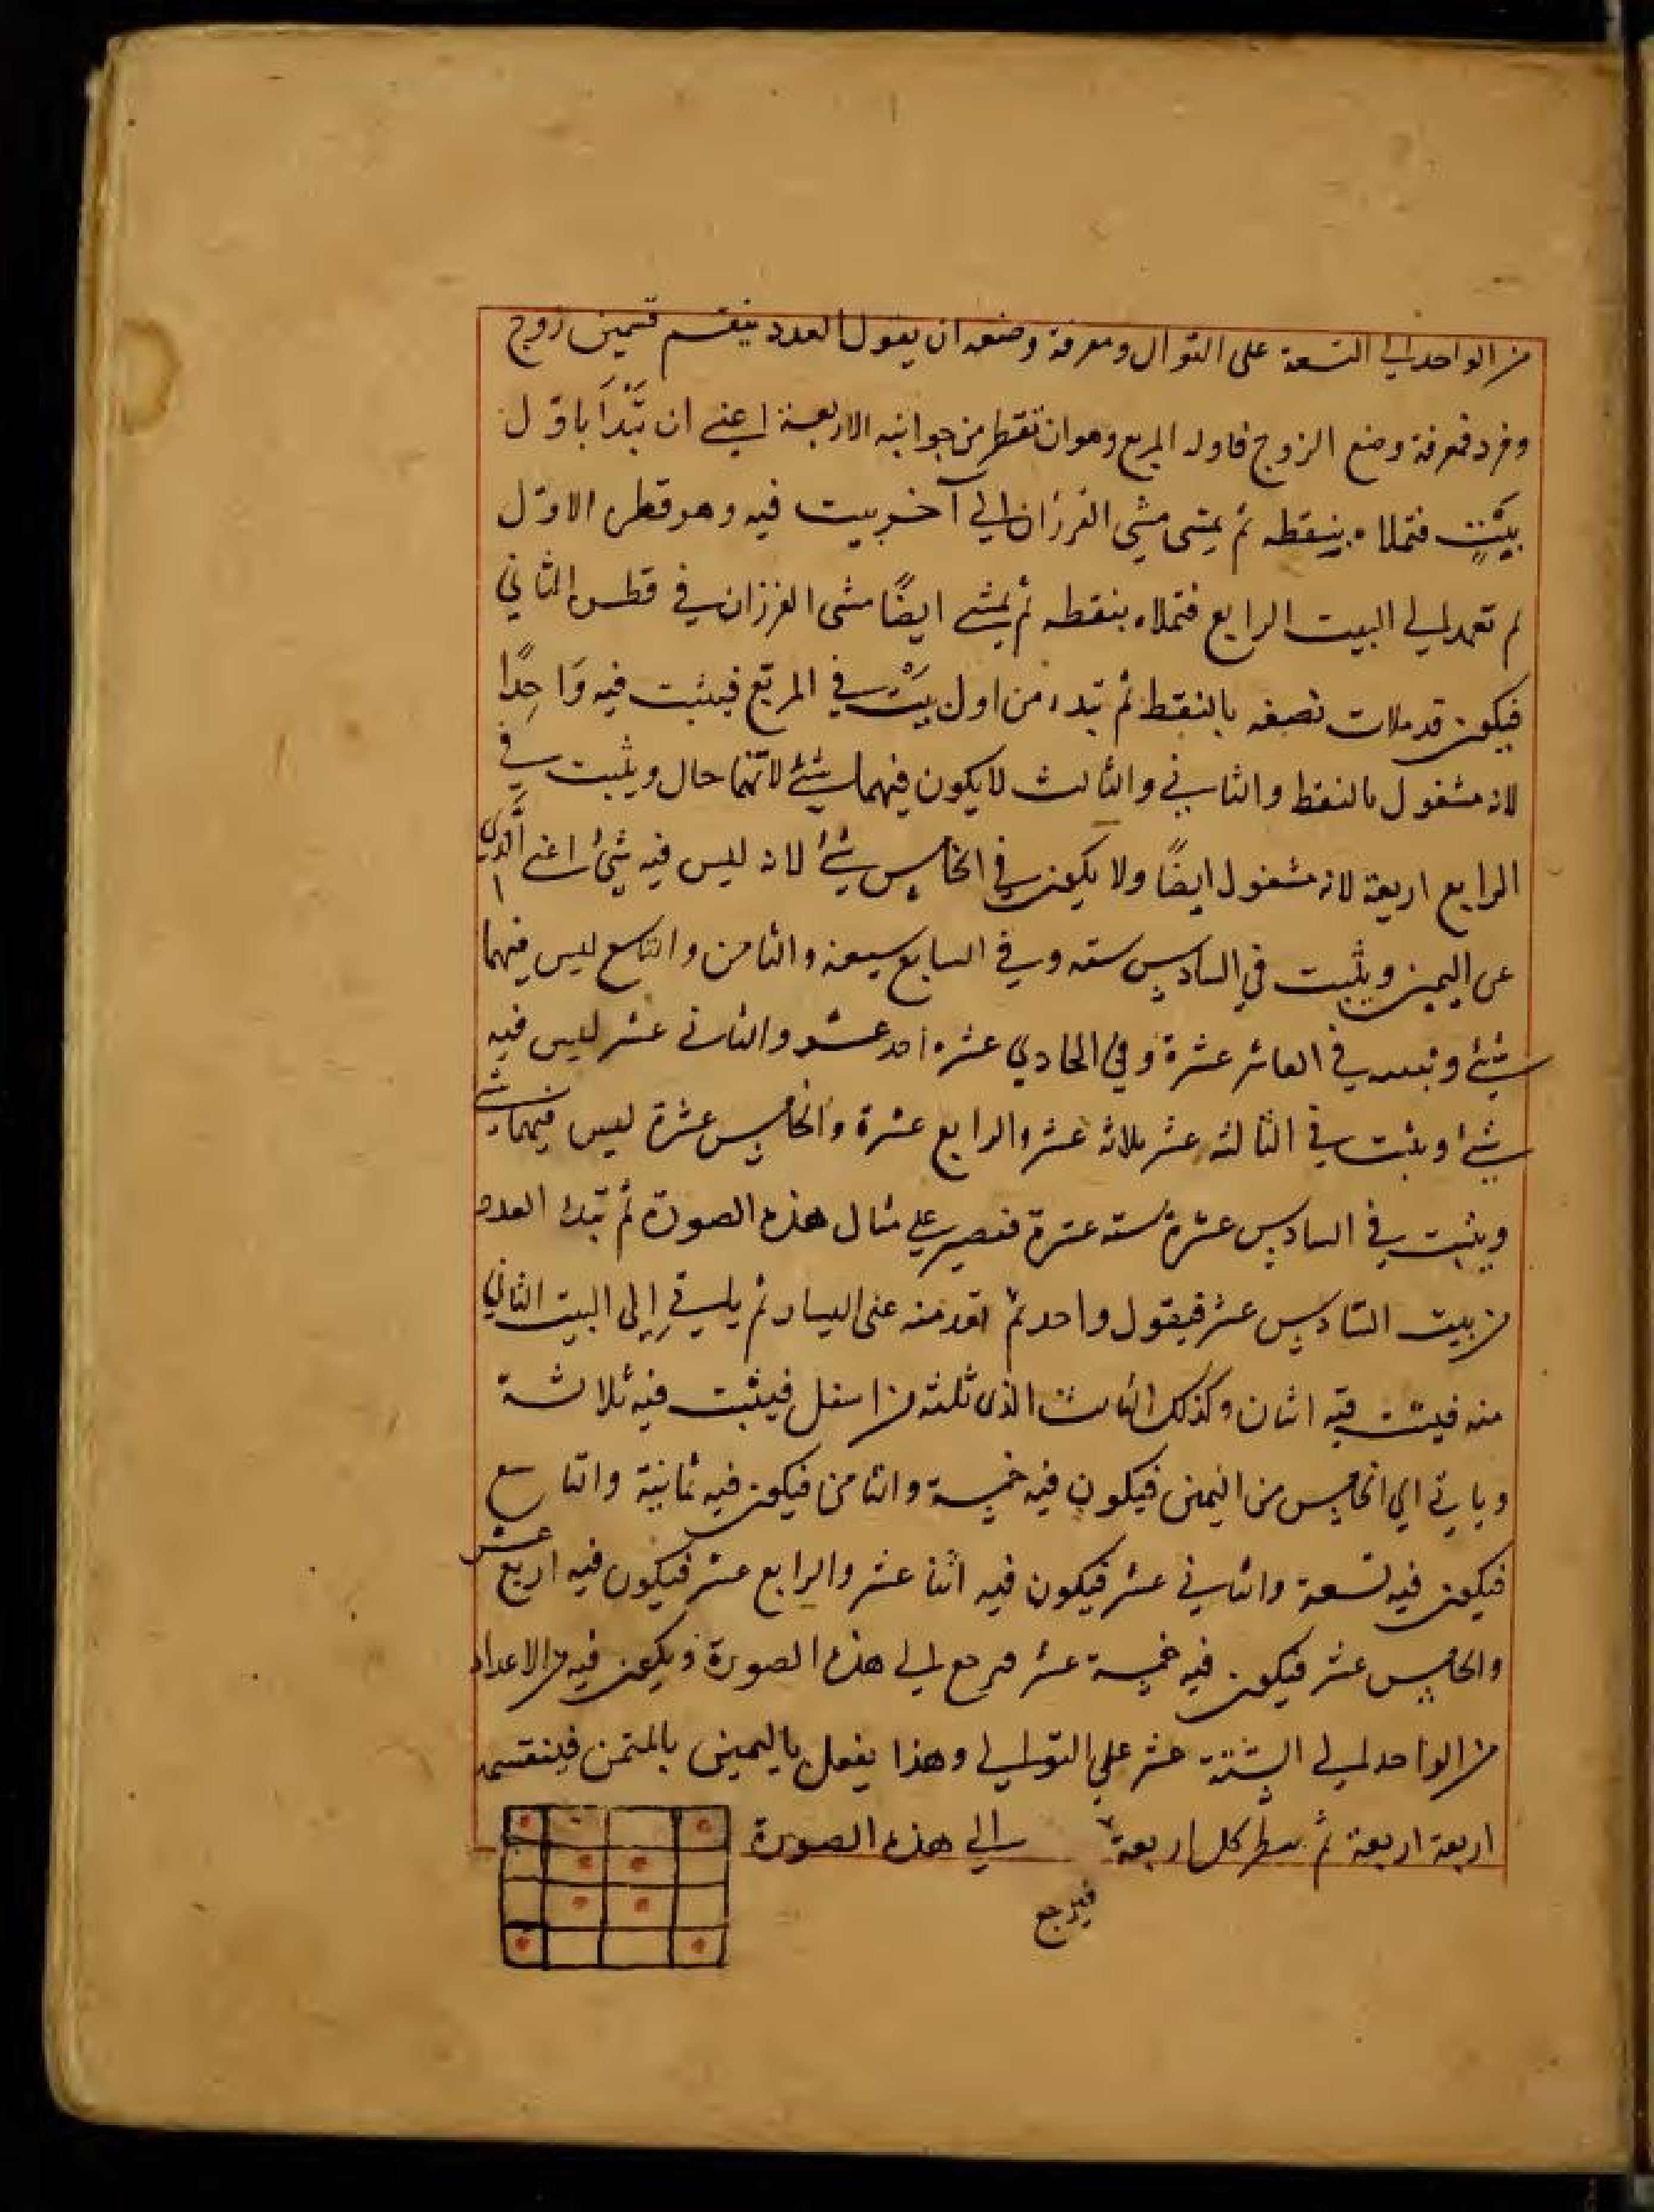 من الواحد الى التسعة على التوال ومعرفة وضعه ان يقول العدد ينقسم قسمين زوج
وفرد فمعرفة وضع الزوج فاوله المربع وهو ان تنقط من جوانبه الاربعة اعني ان تَبْدَأ باوّل
بَيْتٍ فتملاه بنقطه ثم يمشى مشي الفرزان الي آخر بيت فيه وهو قطر الاوّل
ثم تعمد الي البيت الرابع فتملاه بنقطه ثم يمشي ايضًا مشى الفرزان في قطر الثاني
فيكون قد ملات نصفه بالنقط ثم تبدء من اول بَيْت في المربّع فيثبت فيه وَاحِدًا
لانه مشغول بالنقط والثاني والثالث لا يكون فيهما شيئ لانهما حال ويثبت في
الرابع اربعة لانه مشغول ايضًا ولا يكون في الخامس شيئ لانه ليس فيه شئ اعني الَّذي
عن اليمين ويثبت في السادس سته وفي السابع سبعه والثامن والتاسع ليس فيهما
شيئ في العاشر عشرة وفي الحادي عشره احد عشر والثاني عشر ليس فيه
شيئ ويثبت في الثالثه عشر ثلاثه عشر والرابع عشرة والخامس عشرة ليس فيهما شي
ويثبت في السادس عشرة سته عشرة فتصير علي مثال هذه الصورة ثم تبدا العدد
من بيت السّادس عشر فيقول واحد ثم منه عن اليسار ثم ياتي إلى البيت الثاني
منه فيثبت فيه اثنان وكذلك الثالث الذى ثلثه من اسفل فيثبت فيه ثلاثة
وياتي الي الخامس من اليمين فيكون فيه خمسة والثامن فيكون فيه ثمانية والتاسع
فيكون فيه تسعة والثاني عشر فيكون فيه اثنا عشر والرابع عشر فيكون فيه اربع عشر
والخامس عشر فيكون فيه خمسة عشر فيرجع الي هذه الصورة ويكون فيه من الاعداد
من الواحد الي الستة عشر علي التوالي وهذا يفعل باليمين بالمثمن فينقسم
اربعة اربعة ثم كل اربعة الي هذه الصورة
فيرجع